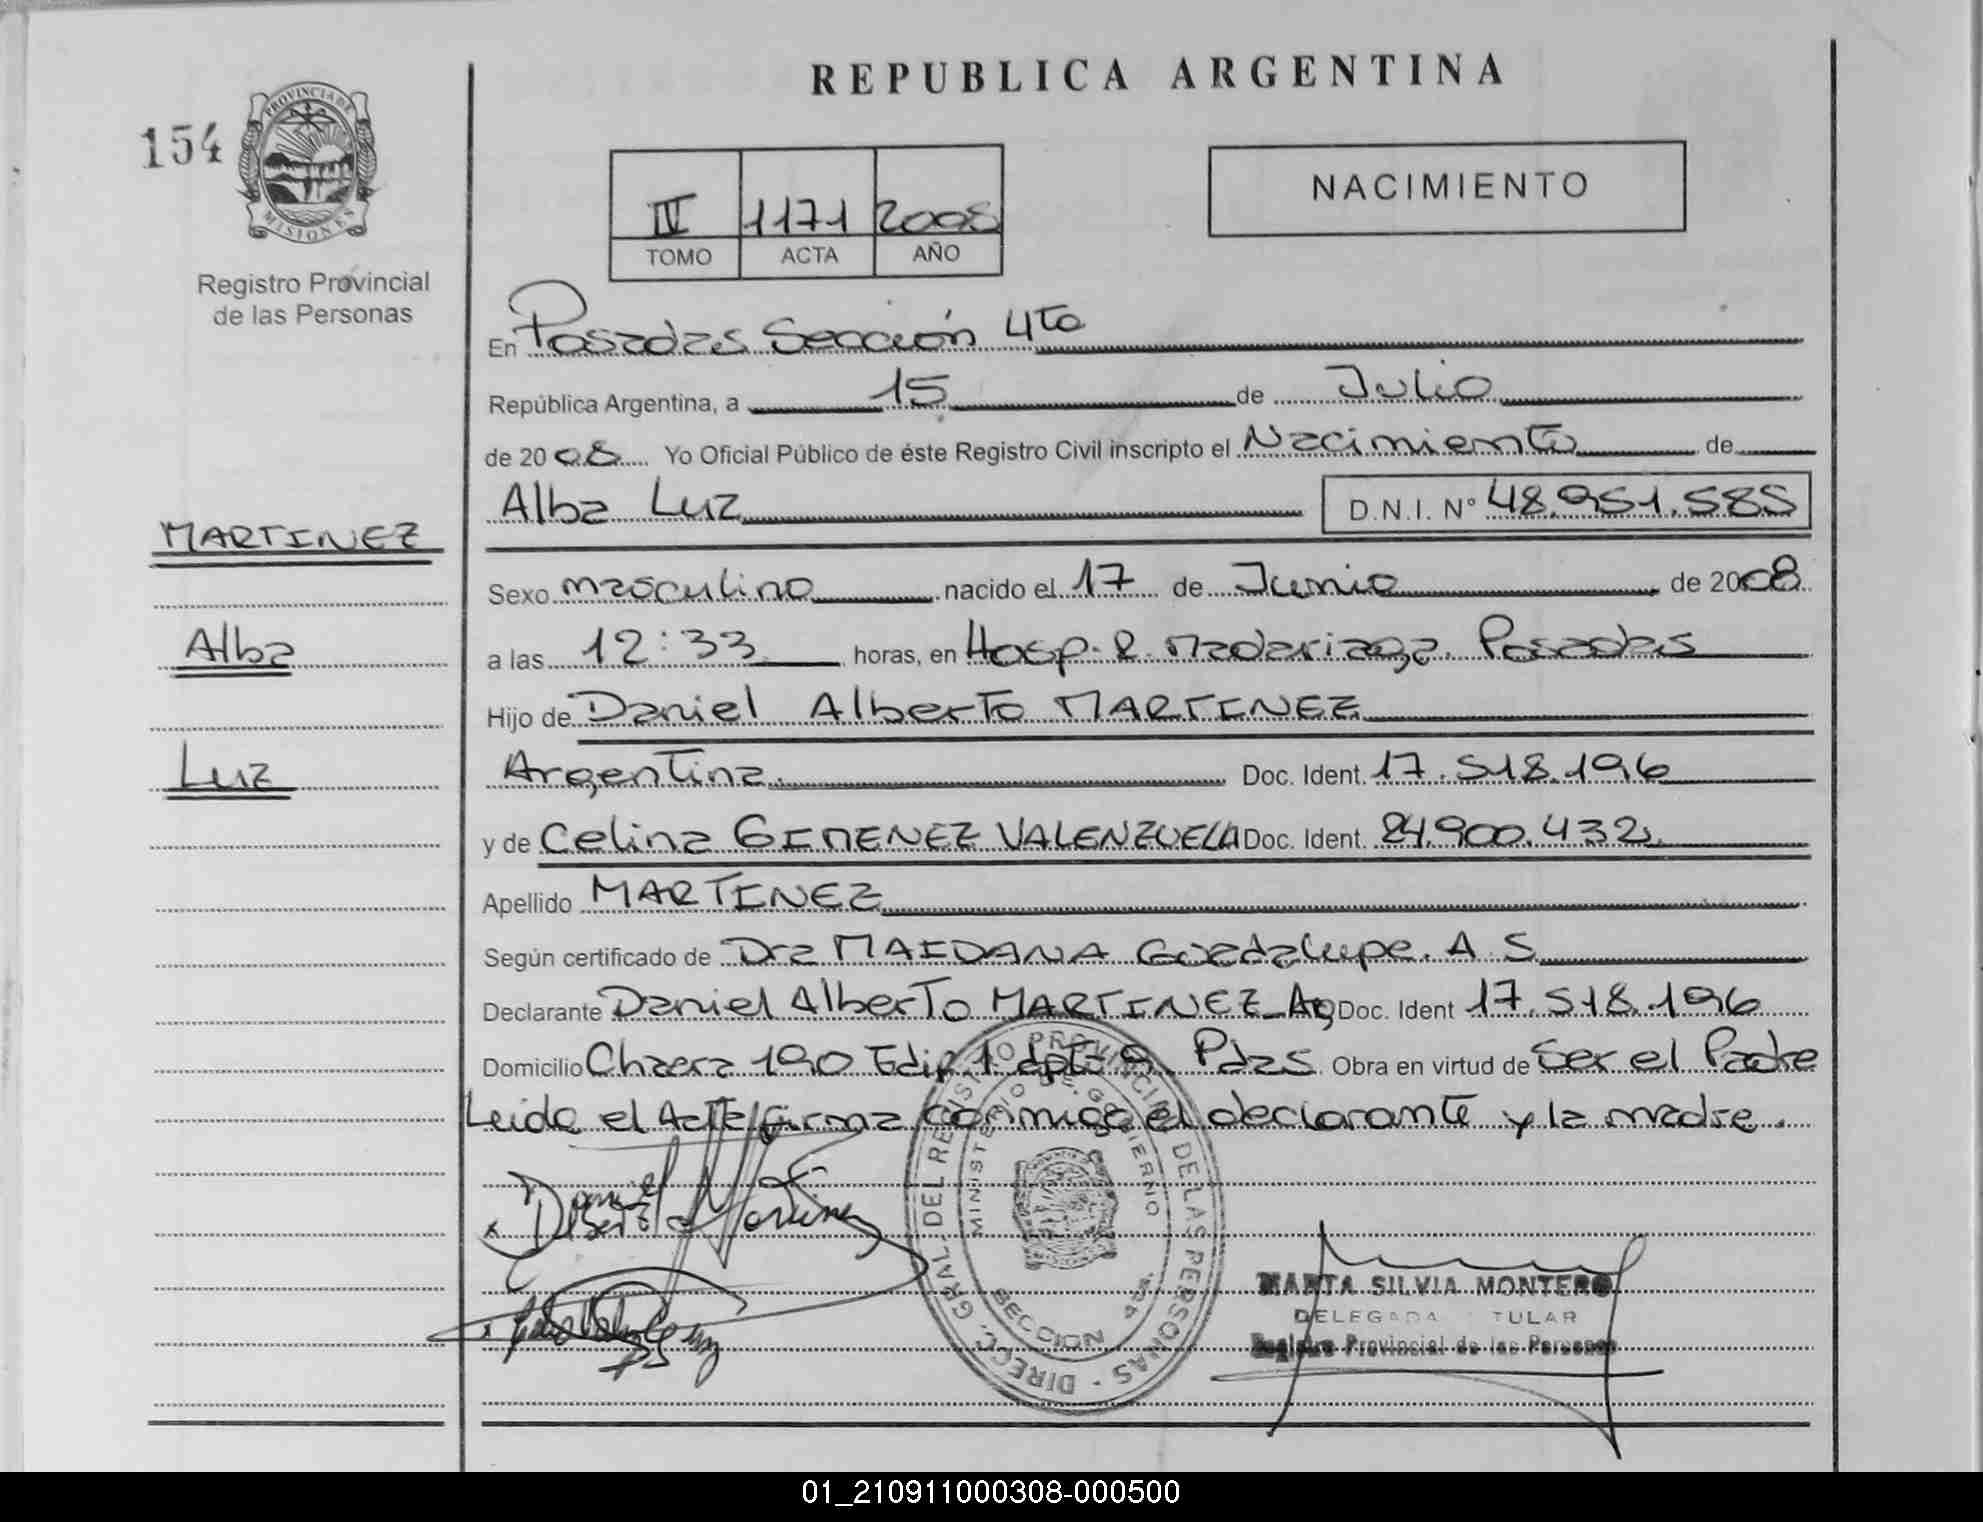 REPUBLICA ARGENTINA
154
PROVINCIA DE
MISIONES
Registro Provincial
de las Personas
IV 1171 2008
TOMO ACTA AÑO
NACIMIENTO
En Posadas Sección 4ta
República Argentina, a 15 de Julio
de 2008 Yo Oficial Público de éste Registro Civil inscripto el Nacimiento de
Alba Luz D.N.I. N° 48.951.585
MARTINEZ
Alba
Luz
Sexo masculino nacido el 17 de Junio de 2008
a las 12:33 horas, en Hosp. R. Madariaga. Posadas
Hijo de Daniel Alberto MARTINEZ
Argentina Doc. Ident. 17.518.196
y de Celina GIMENEZ VALENZUELA Doc. Ident. 900.432
Apellido MARTINEZ
Según certificado de Dra MAIDANA Guadalupe. A S
Declarante Daniel Alberto MARTINEZ Ag Doc. Ident 17.518.196
Domicilio Chacra 190 Edif. 1 dpto 9. Pdas Obra en virtud de Ser el Padre
Leida el Acta firma conmigo el declarante y la madre.
x Daniel
Alberto Martinez
DIRECC. GRAL. DEL REGISTRO PROVINCIAL DE LAS PERSONAS
MINISTERIO DE GOBIERNO
SECCION 4ta.
MARTA SILVIA MONTERO
DELEGADA TITULAR
Registro Provincial de las Personas
01_210911000308-000500